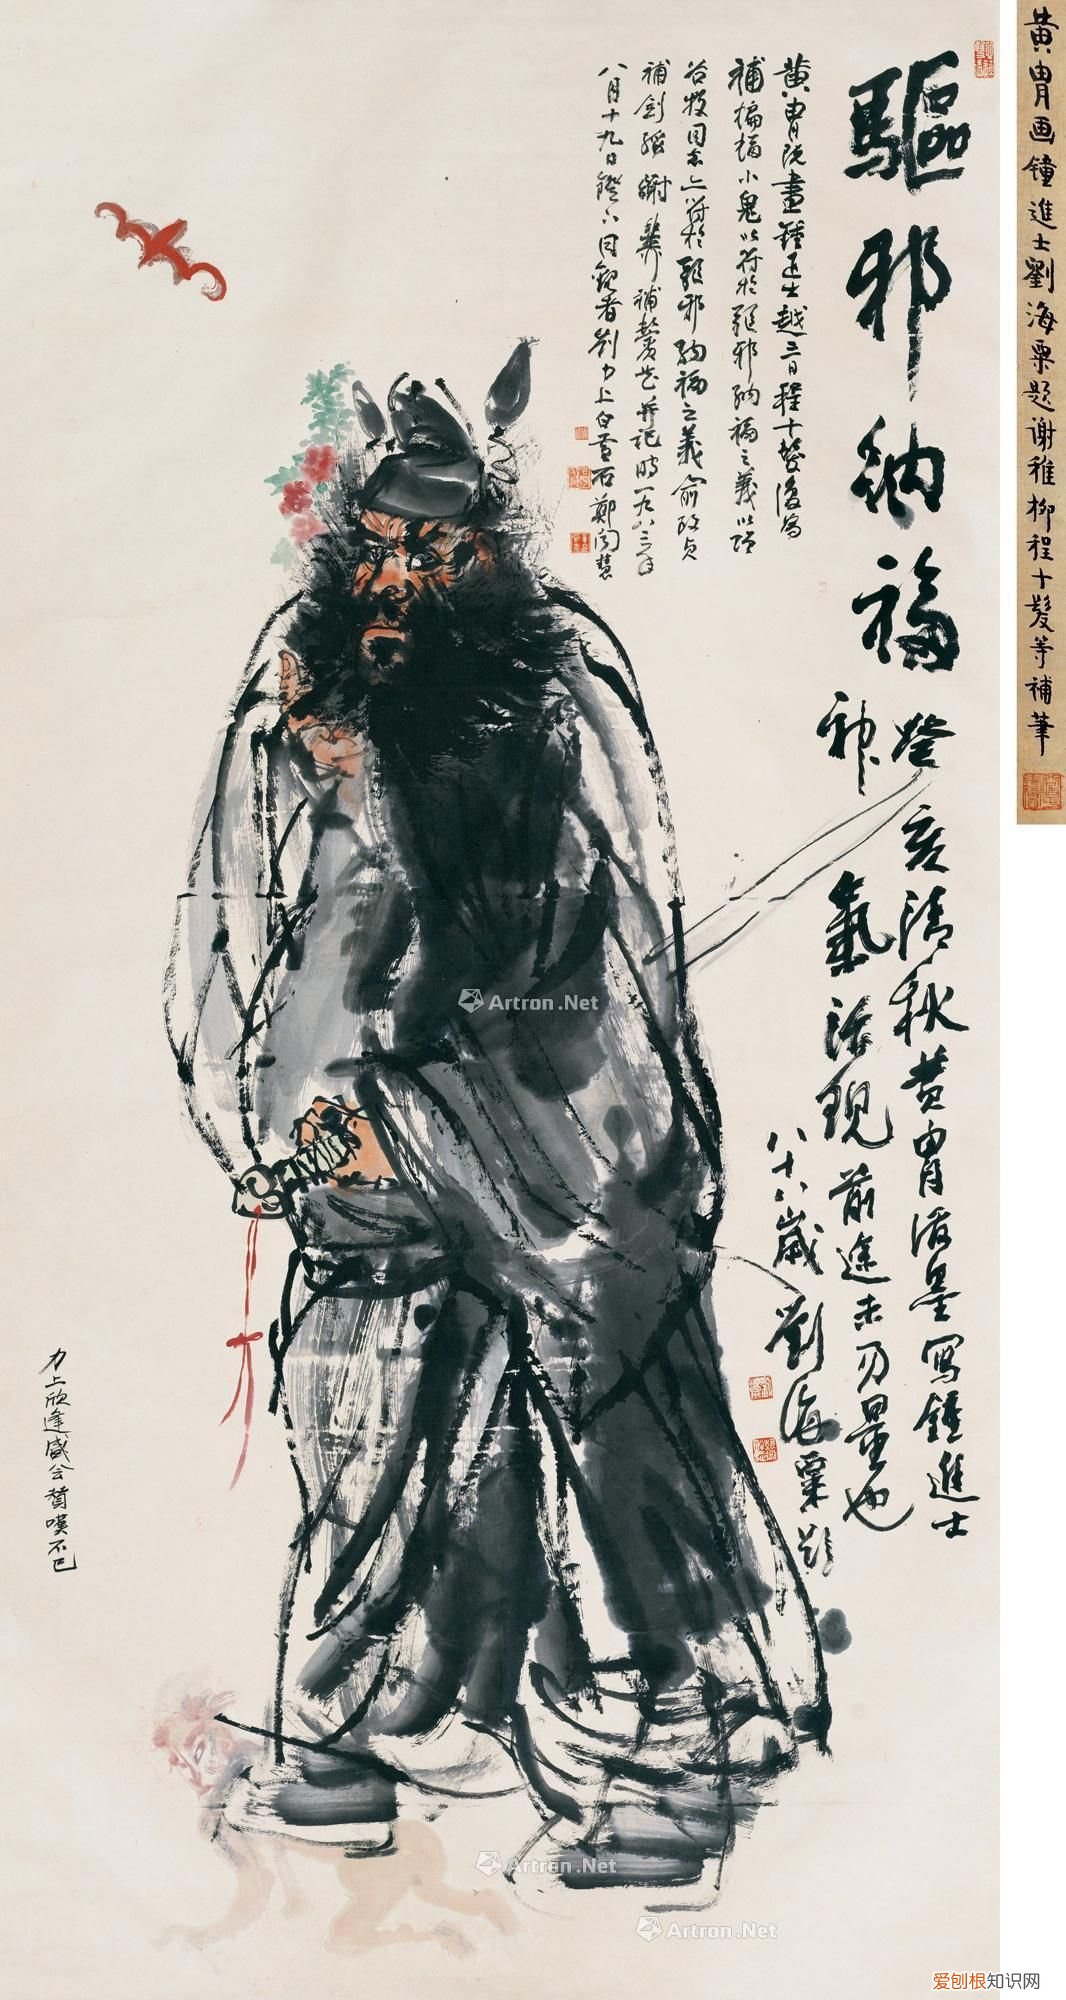 黄胄画鐘進士劉海粟題谢稚柳程十髮等補筆
驅邪納福
癸亥清秋黄胄潑墨寫鍾進士
神氣活現前途未可量也
八十八歲劉海粟題
黄胄既畫鍾進士越三日程十髮復為
補蝙蝠小鬼以符於驅邪納福之義以頌
谷牧同志亦符於驅邪納福之義俞致貞
補劍穗謝稚柳補鬢花并記時一九八三年
八月十九日鐙下同觀者劉力上白雪石鄭聞慧
力上欣逢盛会賛嘆不已
Artron.Net
Artron.Net
Artron.Net
爱刨根知识网